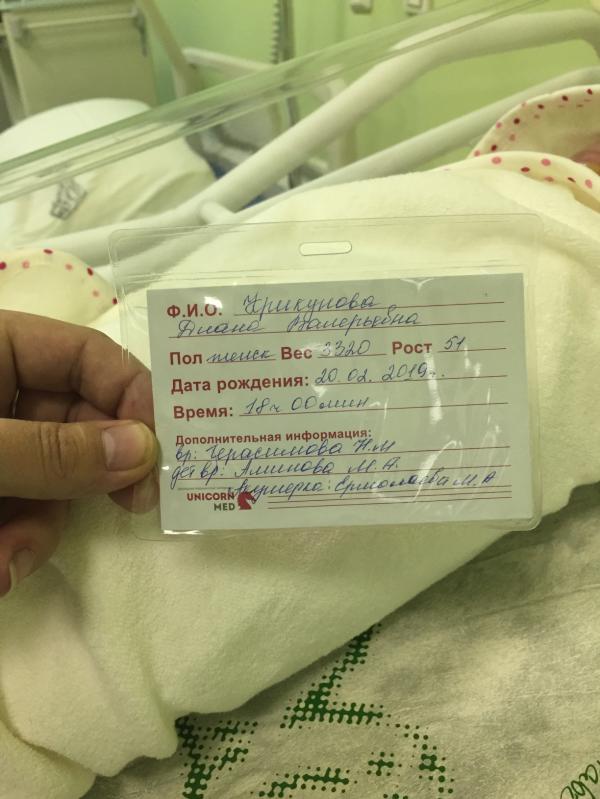 Ф.И.О. Крикунова
Диана Валерьевна
Пол женск Вес 3320 Рост 51
Дата рождения: 20.02.2019г.
Время: 18ч 00мин
Дополнительная информация:
вр: Герасимова Н.М
дет вр: Аминова М.А.
Акушерка: Ермолаева М.А
UNICORN
MED